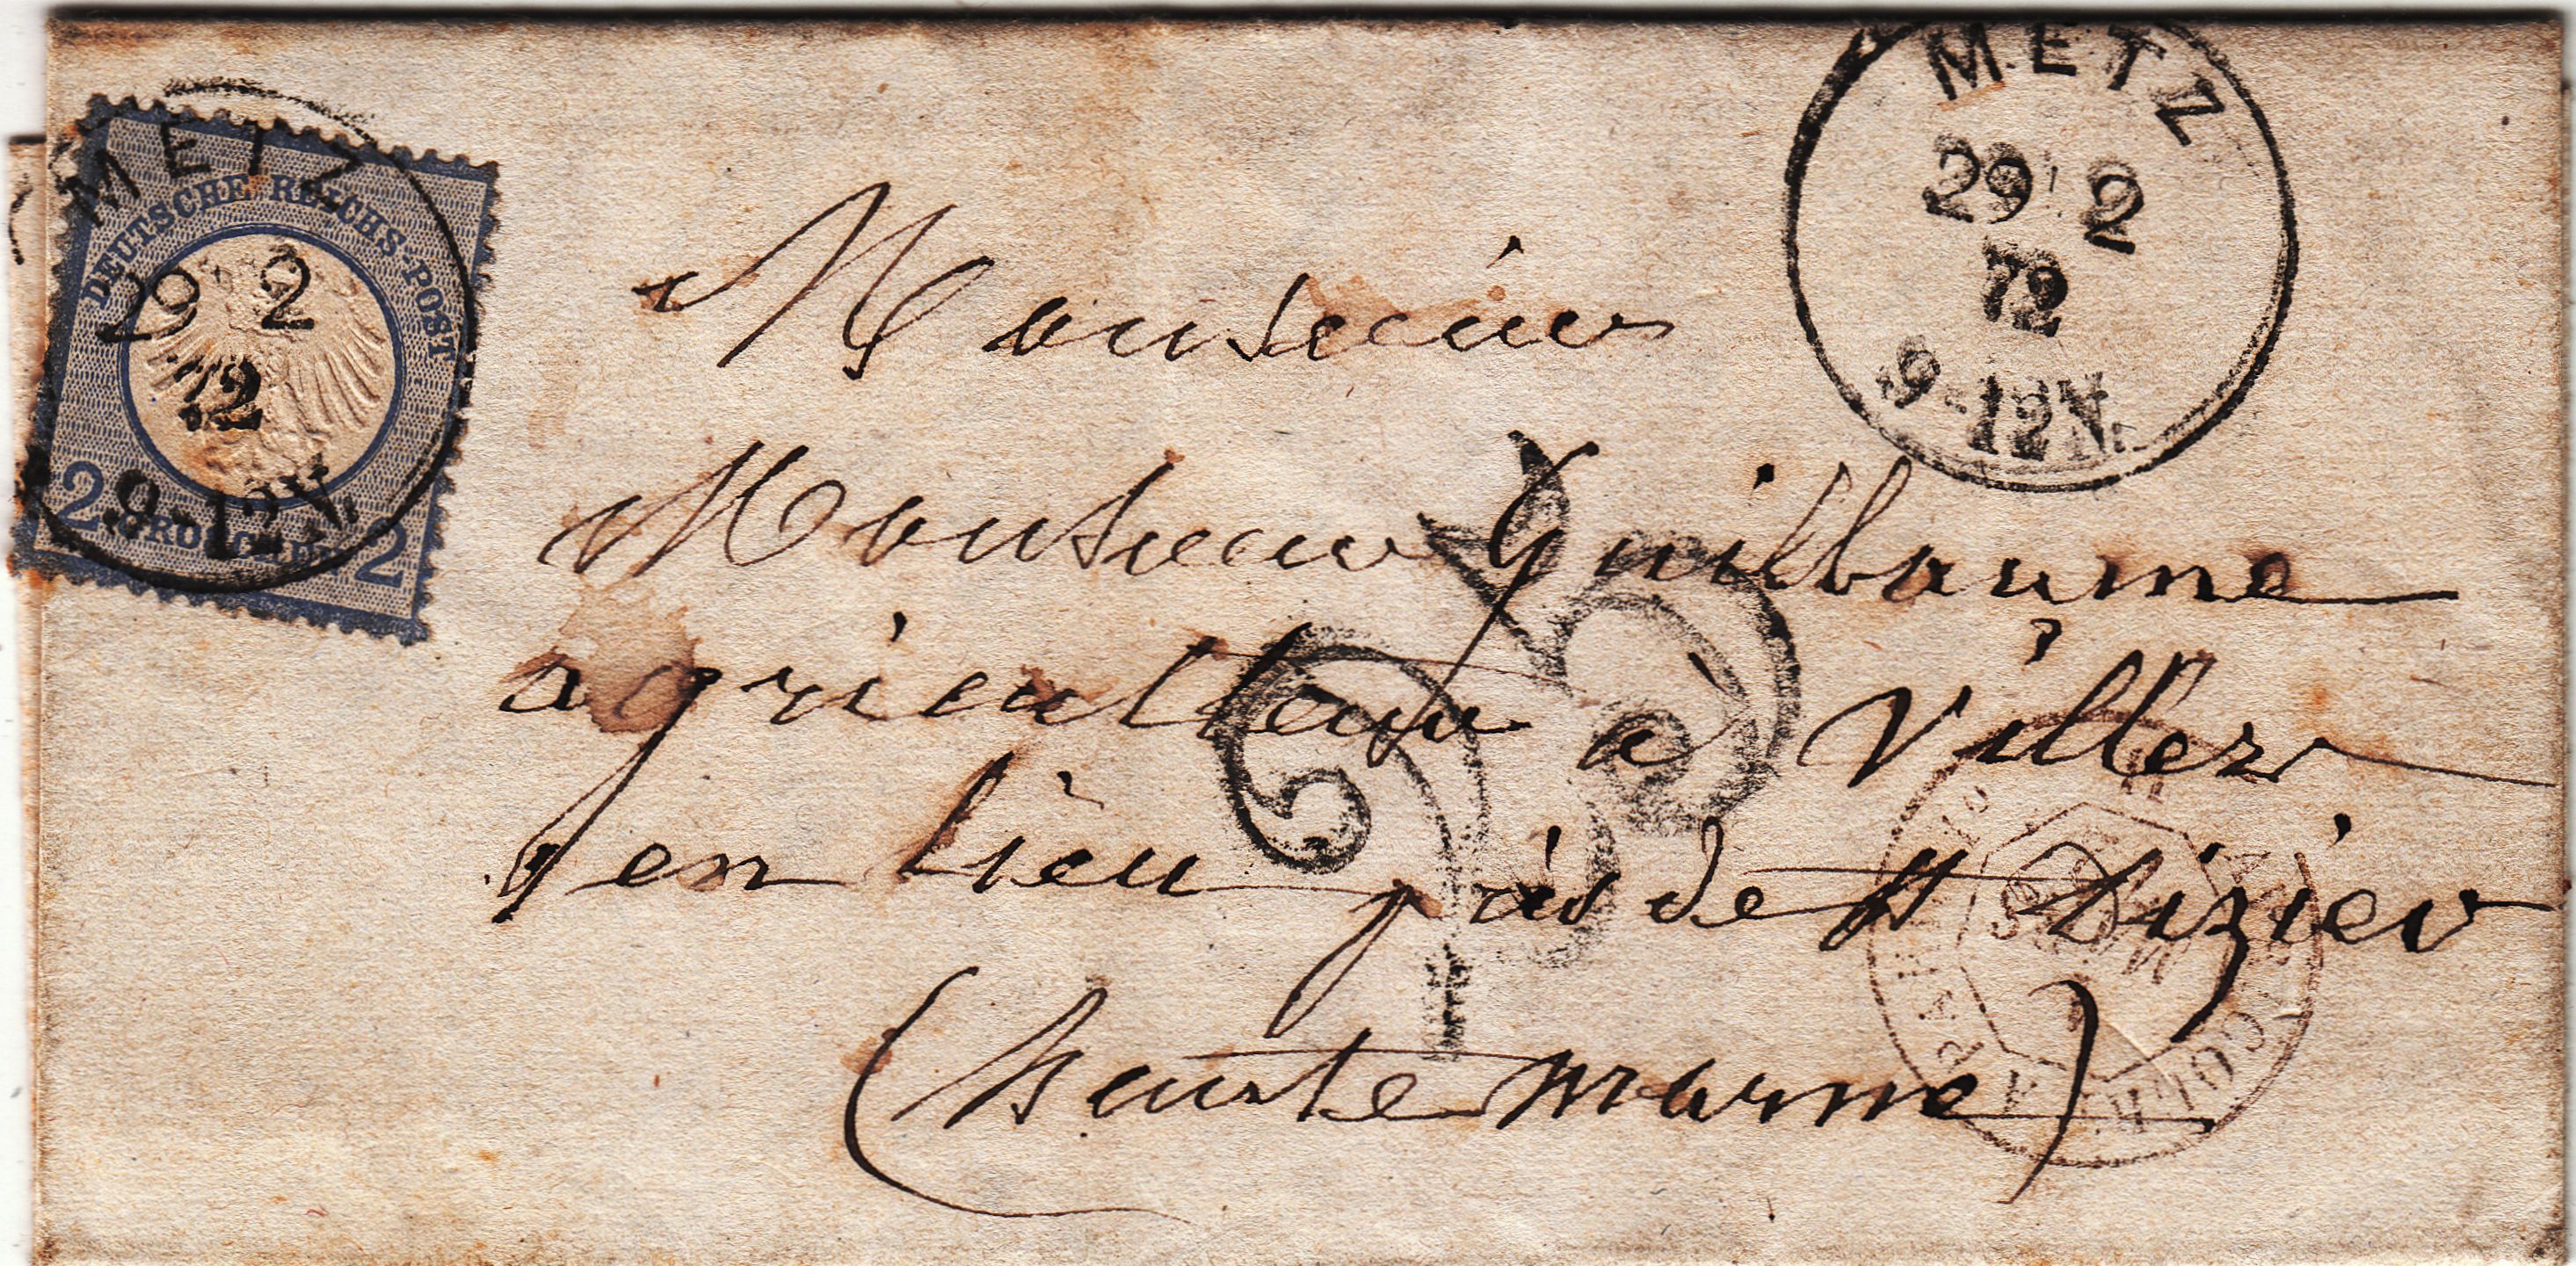 METZ
29 2
72
9-12N.
DEUTSCHE REICHS-POST
2 GROSCHEN 2
METZ
29 2
72
9-12N.
Monsieur
Monsieur Guilbaume
agriculteur à Villers
en Lieu près de St Dizier
(haute marne)
25